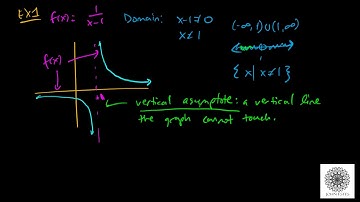 EX1 f(x) = 1/(x-1) Domain: x-1≠0 (-∞,1)∪(1,∞)
x≠1
1
{x | x≠1}
f(x)
vertical asymptote: a vertical line
the graph cannot touch.